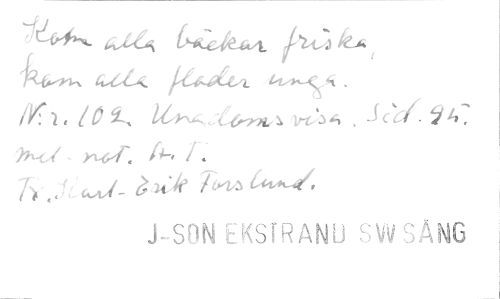 Kom alla bäckar friska,
kom alla floder unga.
N:r. 102. Ungdomsvisa. Sid. 95.
mel. not. A. T.
Tr. Karl-Erik Forslund.
J-SON EKSTRAND SW SÅNG